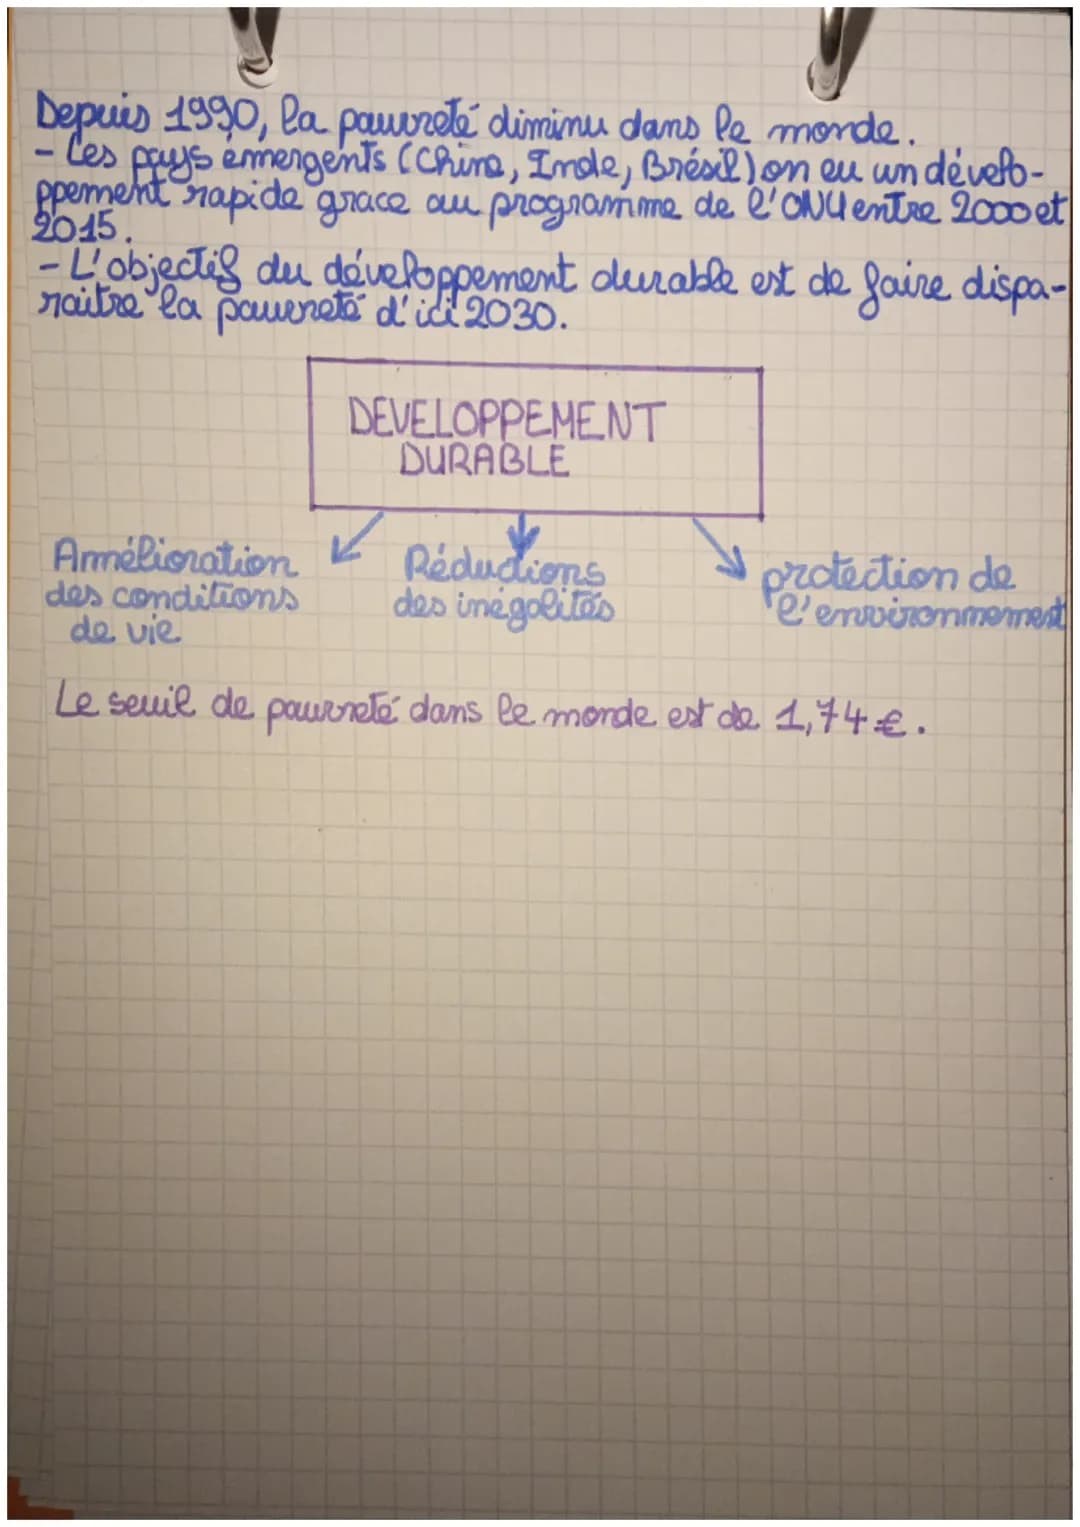 Depuis 1990, la pauvreté diminu dans le monde.
- Les pays émergents (Chine, Inde, Brésil) on eu un dévelo-
ppement rapide grace au programme de l'ONU entre 2000 et
2015.
- L'objectif du développement durable est de faire dispa-
raitre la pauvreté d'ici 2030.
DEVELOPPEMENT
DURABLE
Amélioration
des conditions
de vie
Réductions
des inégalités
protection de
l'environnement
Le seuil de pauvreté dans le monde est de 1,74 €.